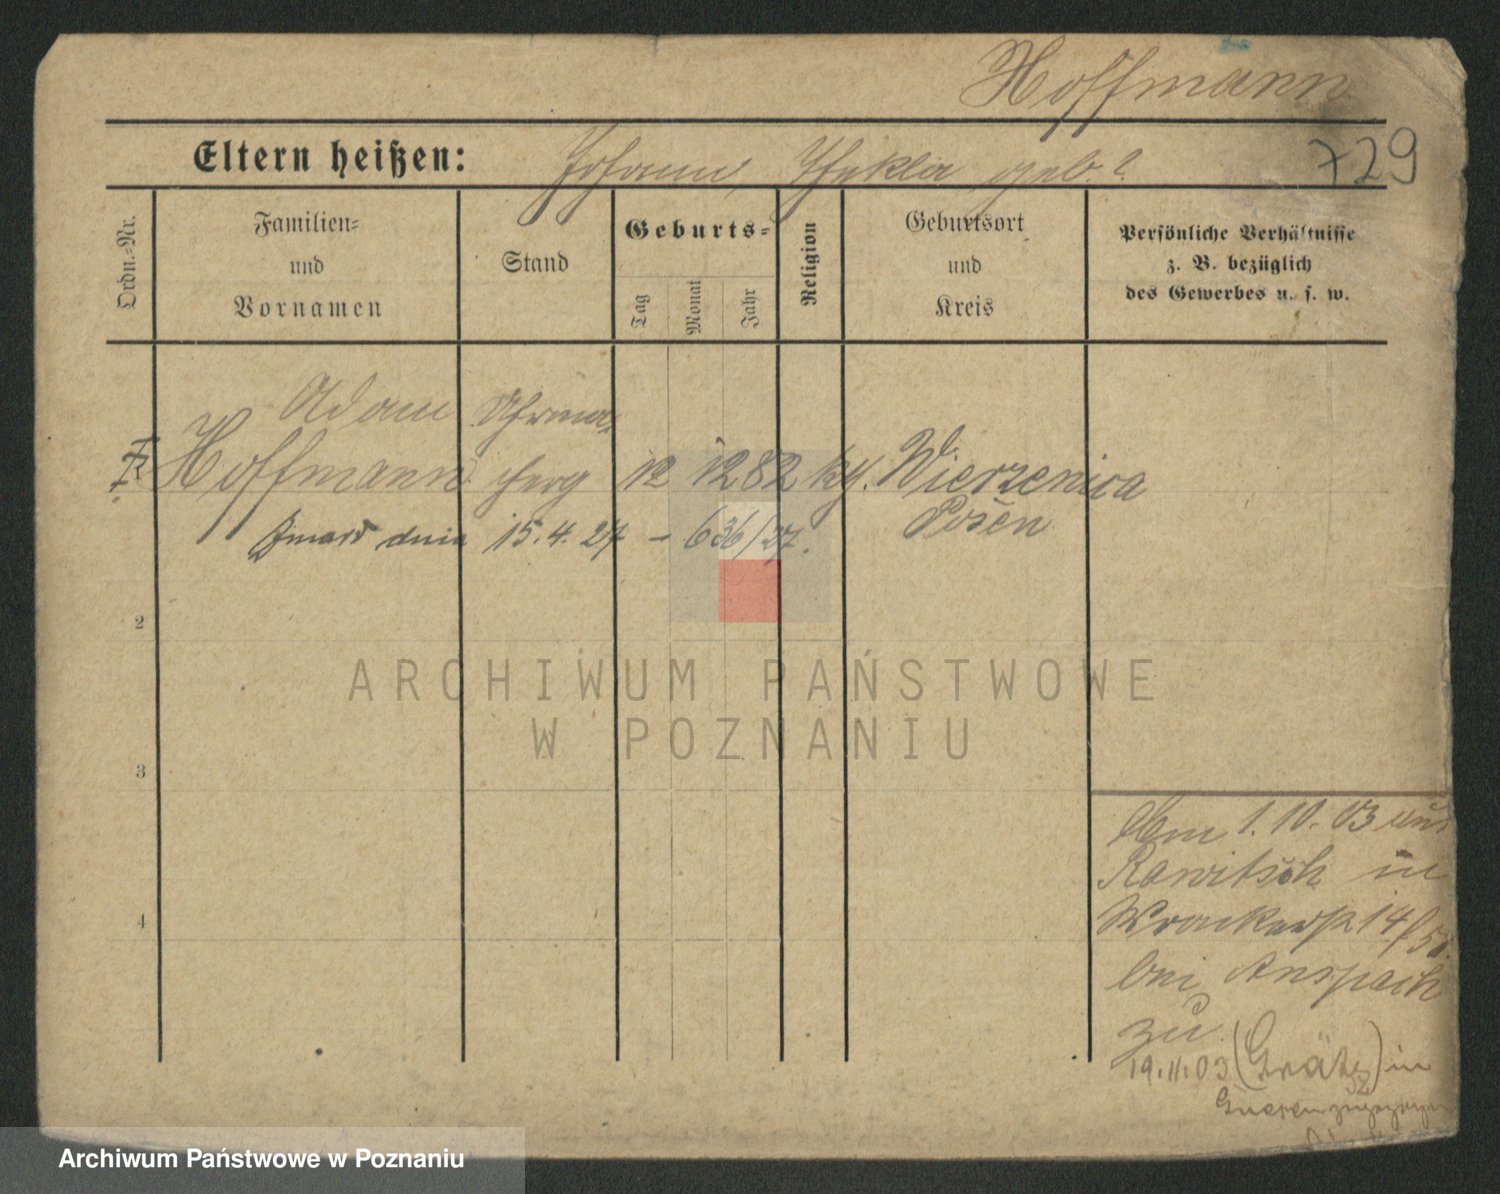 Hoffmann
729
Eltern heißen: Johann, Thekla geb. ?
Ordn.-Nr.
Familien-
und
Vornamen
Stand
Geburts-
Tag
Monat
Jahr
Religion
Geburtsort
und
Kreis
Persönliche Verhältnisse
z. B. bezüglich
des Gewerbes u. s. w.
Adam Uhrma-
Hoffmann 12 12 82 kath. Wierzenica
Posen
Zmarł dnia 15.4.27 – 636/27.
2
3
4
ARCHIWUM PAŃSTWOWE
W POZNANIU
Am 1.10.03 aus
Rawitsch in
Wronkerstr 14/
bei Anspach
zu.
19.11.03 (Grätz) in
Gnesen
Archiwum Państwowe w Poznaniu